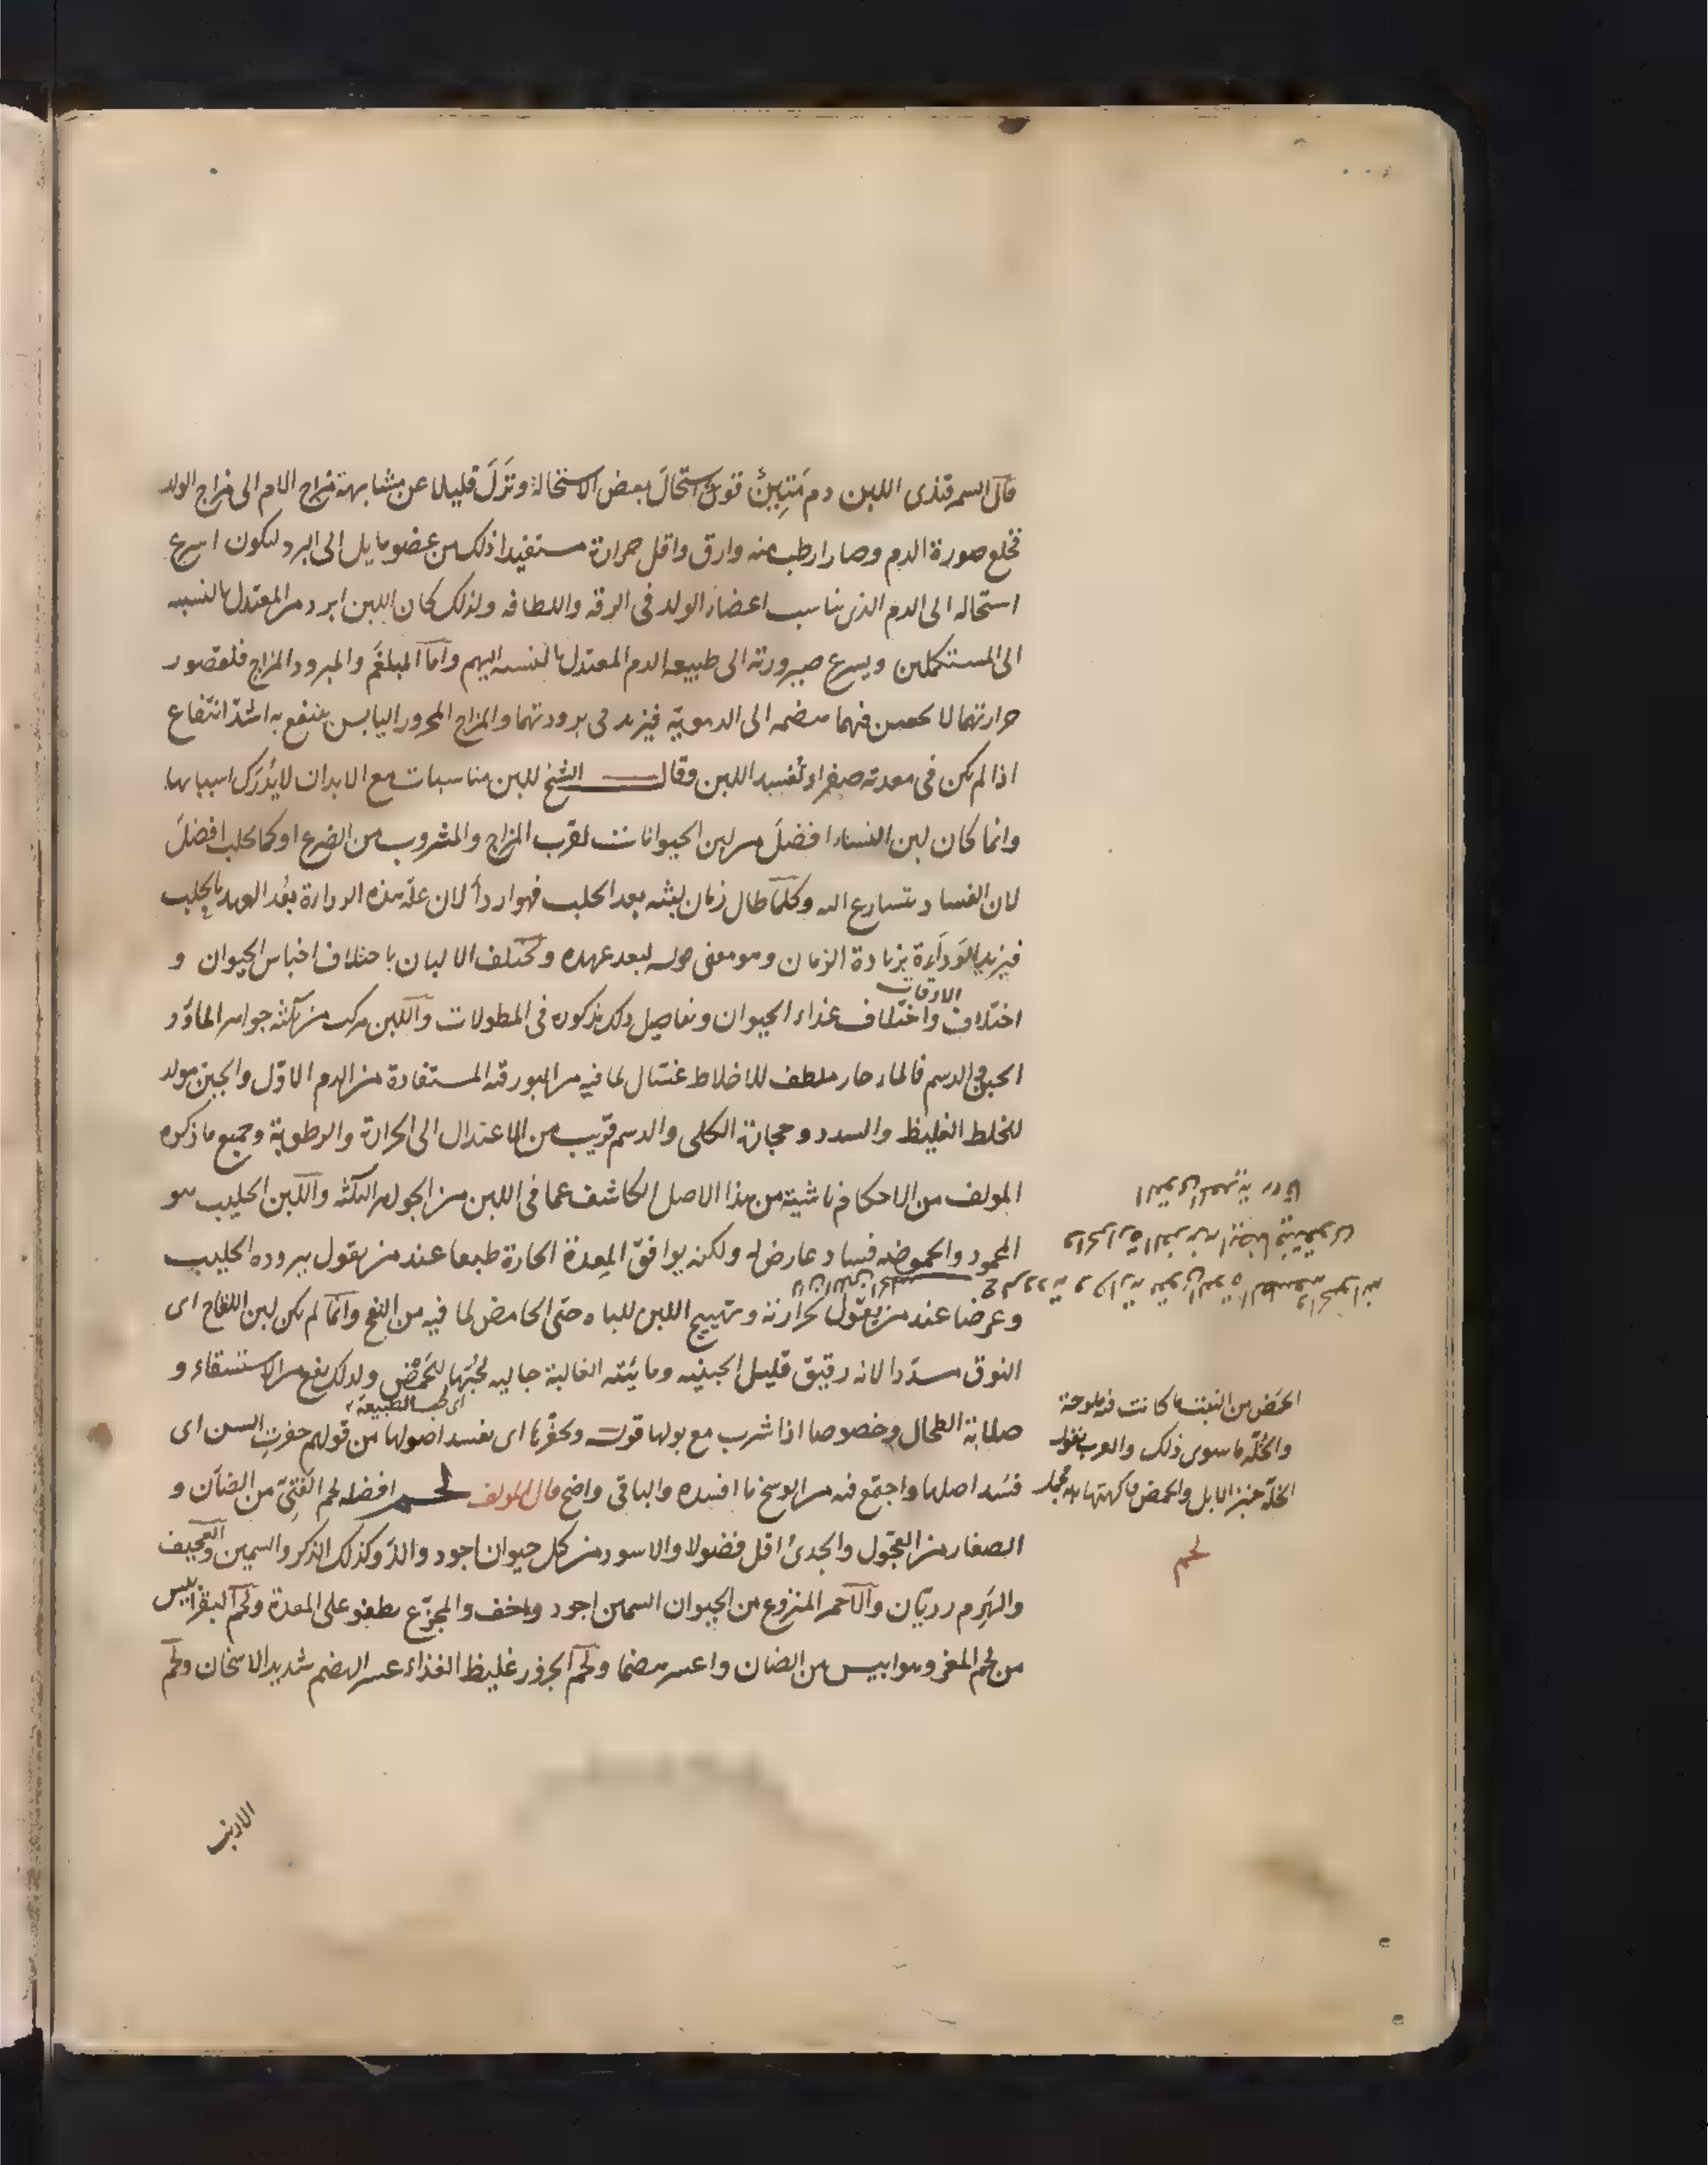 قال السمرقندى اللبن دم متين تولى استحال بعض الاستحالة ونزل قليلا عن مشابهة مزاج الام الى مزاج الولد
فخلع صورة الدم وصار ارطب منه وارق واقل حرارة مستفيدا ذلك من عضو مايل الى البرد ليكون اسرع
استحاله الى الدم الذى يناسب اعضاء الولد فى الرقه واللطافه ولذلك كان اللبن ابرد من المعتدل بالنسبه
الى المستكملين ويسرع صيرورته الى طبيعه الدم المعتدل بالنسبه اليهم واما المبلغم والمبرود المزاج فلقصور
حرارتهما لا فيهما هضمه الى الدمويّة فيزيد فى برودتهما والمزاج المحرور اليابس ينتفع به اشدّ انتفاع
اذا لم يكن فى معدته صفراء تُفسد اللبن وقال الشيخ للبن مناسبات مع الابدان لا يُدرَك اسبابها
وانما كان لبن النساء افضلَ من لبن الحيوانات لقرب المزاج والمشروب من الضرع او كما يحلب افضلَ
لان الفساد يتسارع اليه وكلّما طال زمان لبثه بعد الحلب فهو اردأ لان علّة هذه الرداءة بُعد العهد بالحلب
فيزيد الرداءة بزيادة الزمان وهو معنى قوله لبعد عهده وتختلف الالبان باختلاف اجناس الحيوان و
اختلاف الاوقات واختلاف غذاء الحيوان وتفاصيل ذلك مذكوره فى المطولات واللبن مركب من ثلثه جواهر الماء و
الجبن والدسم فالماء حار ملطف للاخلاط غسّال لما فيه من البورقيه المستفادة من الدم الاوّل والجبن مولد
للخلط الغليظ والسدد وحجارة الكلى والدسم قريب من الاعتدال الى الحرارة والرطوبة وجميع ما ذكره
المولف من الاحكام ناشية من هذا الاصل الكاشف عما فى اللبن من الجواهر الثلثه واللبن الحليب هو
المحمود والحموضه فساد عارض له ولكنه يوافق المعدة الحارة طبعا عند من يقول ببروده الحليب
وعرضا عند من يقول بحرارته وتهييج اللبن للباه حتى الحامض لما فيه من النفخ وانّما لم يكن لبن اللقاح اى
النوق مسدّدا لانه رقيق قليل الجبنيه ومائيّته الغالبة جاليه لحبّها للحَمْض ولذلك ينفع من الاستسقاء و
اى لحب الطبيعة
صلابة الطحال وخصوصا اذا شرب مع بولها قوله ويحفرها اى يفسد اصولها من قولهم حفرت السن اى
فسد اصلها واجتمع فيه من الوسخ ما افسده والباقى واضح قال المولف لحم افضله لحم الفتىّ من الضأن و
الصغار من العجول والجدىُ اقل فضولا والاسود من كل حيوان اجود والذّ وكذلك الذكر والسمين والعجيف
والهَرِم رديّان والاحمر المنزوع من الحيوان السمين اجود واخف والمجزّع يطفو على المعدة ولحم البقر ايبس
من لحم المعز وهو ايبس من الضان واعسر هضما ولحم الجزور غليظ الغذاء عسر الهضم شديد الاسخان ولحم
الحَمْض من النبت ما كانت فيه ملوحة
والخُلّة ما سوى ذلك والعرب تقول
الخلّة خبز الابل والحمض فاكهتها مجمل
لحم
الارنب